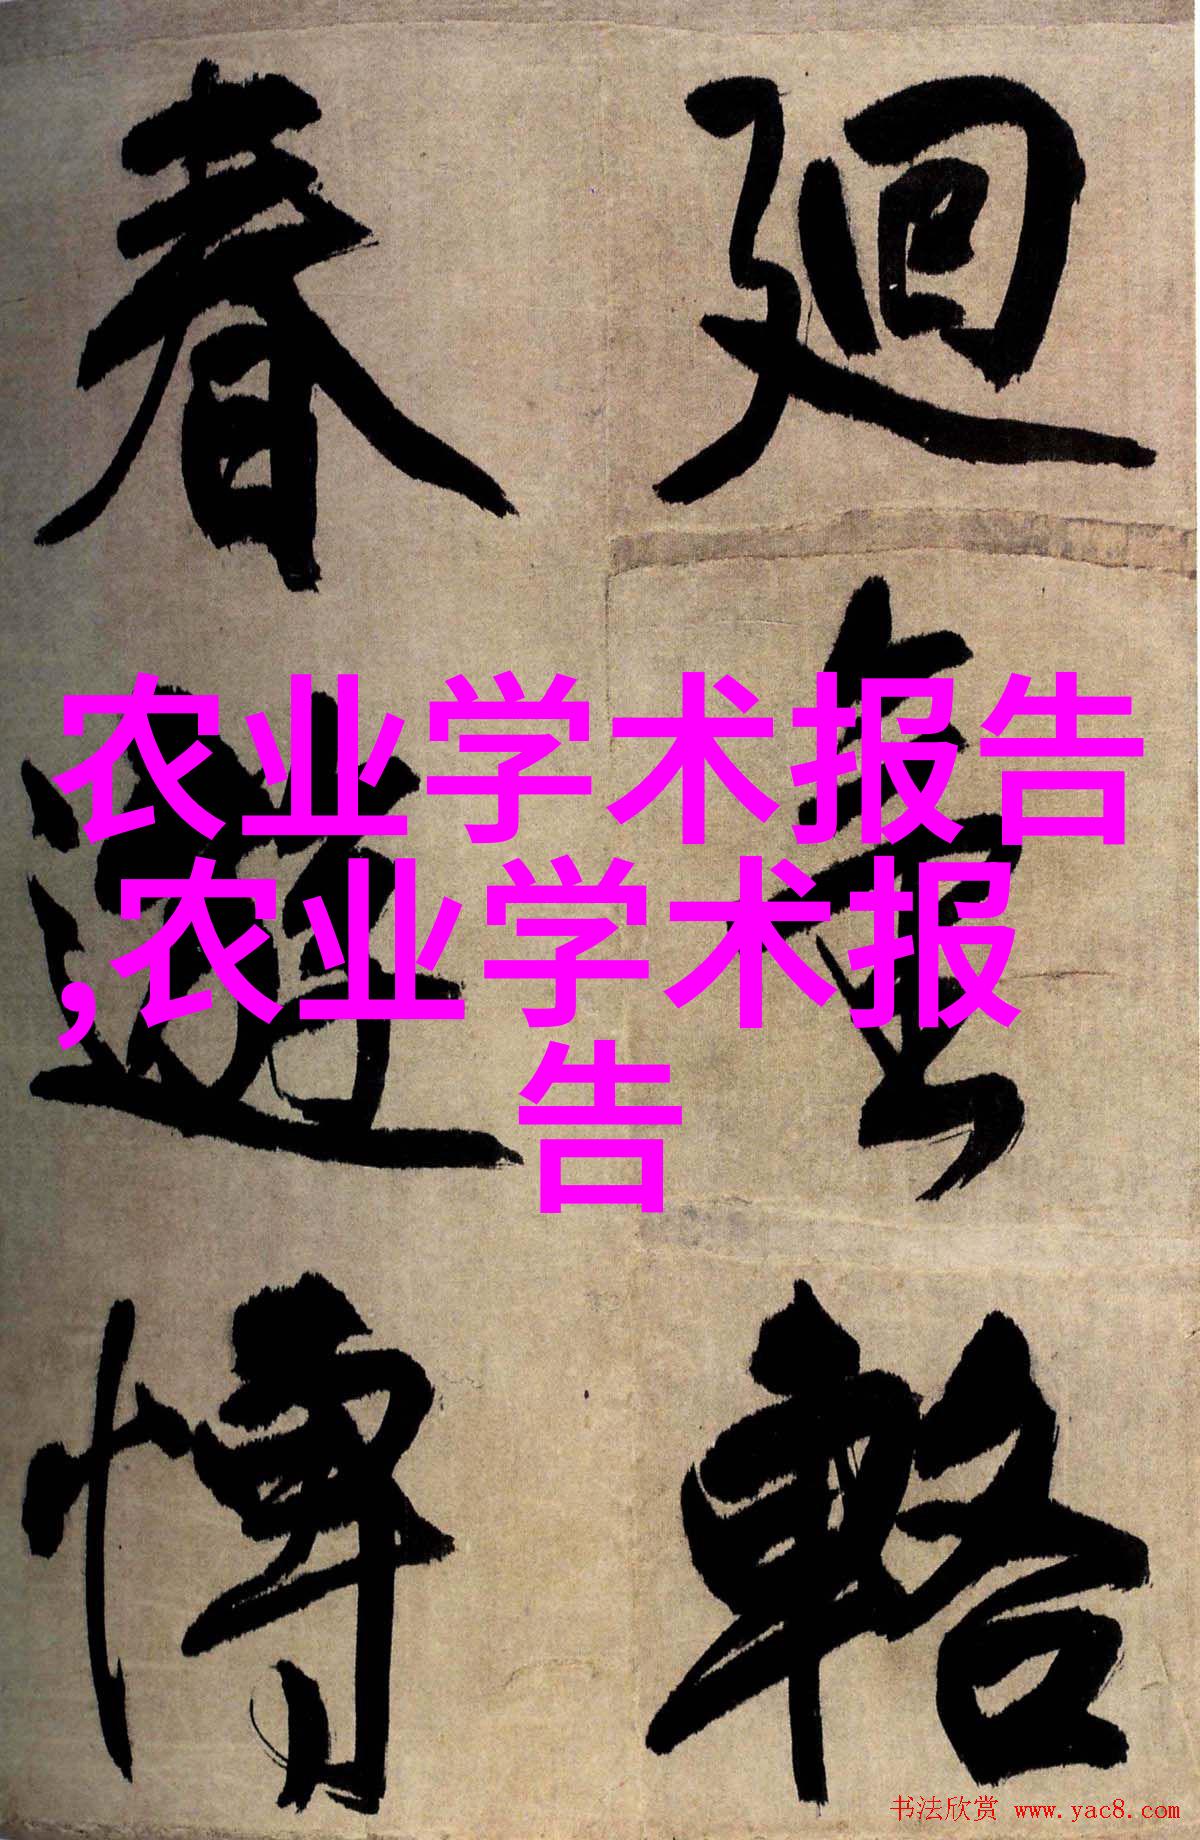 廻金輅
春遊博
农业学术报告
,农业学术报
告
书法欣赏 www.yac8.com